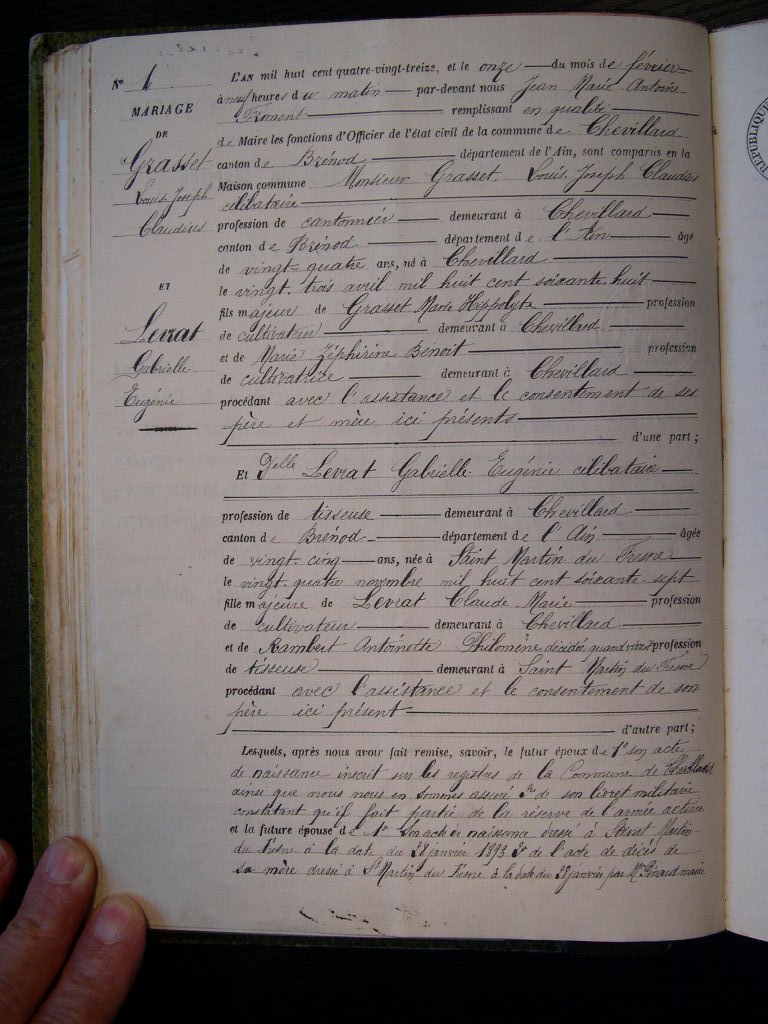 N° 1
MARIAGE
DE
Grasset
Louis Joseph
Claudius
ET
Levrat
Gabrielle
Eugénie
L'AN mil huit cent quatre-vingt-treize, et le onze du mois de février
à neuf heures du matin par-devant nous Jean Marie Antoine
Froment remplissant en qualité
de Maire les fonctions d'Officier de l'état civil de la commune de Chevillard
canton de Brénod département de l'Ain, sont comparus en la
Maison commune Monsieur Grasset, Louis Joseph Claudius
célibataire
profession de cantonnier demeurant à Chevillard
canton de Brénod département de l'Ain âgé
de vingt-quatre ans, né à Chevillard
le vingt-trois avril mil huit cent soixante huit
fils majeur de Grasset Marie Hippolyte profession
de cultivateur demeurant à Chevillard
et de Marie Zéphirine Benoit profession
de cultivatrice demeurant à Chevillard
procédant avec l'assistance et le consentement de ses
père et mère ici présents
d'une part ;
Et Delle Levrat Gabrielle Eugénie célibataire
profession de tisseuse demeurant à Chevillard
canton de Brénod département de l'Ain âgée
de vingt-cinq ans, née à Saint Martin du Fresne
le vingt-quatre novembre mil huit cent soixante-sept
fille majeure de Levrat Claude Marie profession
de cultivateur demeurant à Chevillard
et de Rambert Antoinette Philomène décédée, quand vivait profession
de tisseuse demeurant à Saint Martin du Fresne
procédant avec l'assistance et le consentement de son
père ici présent
d'autre part ;
Lesquels, après nous avoir fait remise, savoir, le futur époux de 1° son acte
de naissance inscrit sur les registres de la Commune de Chevillard
ainsi que nous nous en sommes assuré 2° de son livret militaire
constatant qu'il fait partie de la réserve de l'armée active
et la future épouse de 1° Son acte de naissance dressé à Saint Martin
du Fresne à la date du 28 janvier 1893 2° de l'acte de décès de
sa mère dressé à St Martin du Fresne à la date du 28 janvier par Mr maire
RÉPUBLIQUE